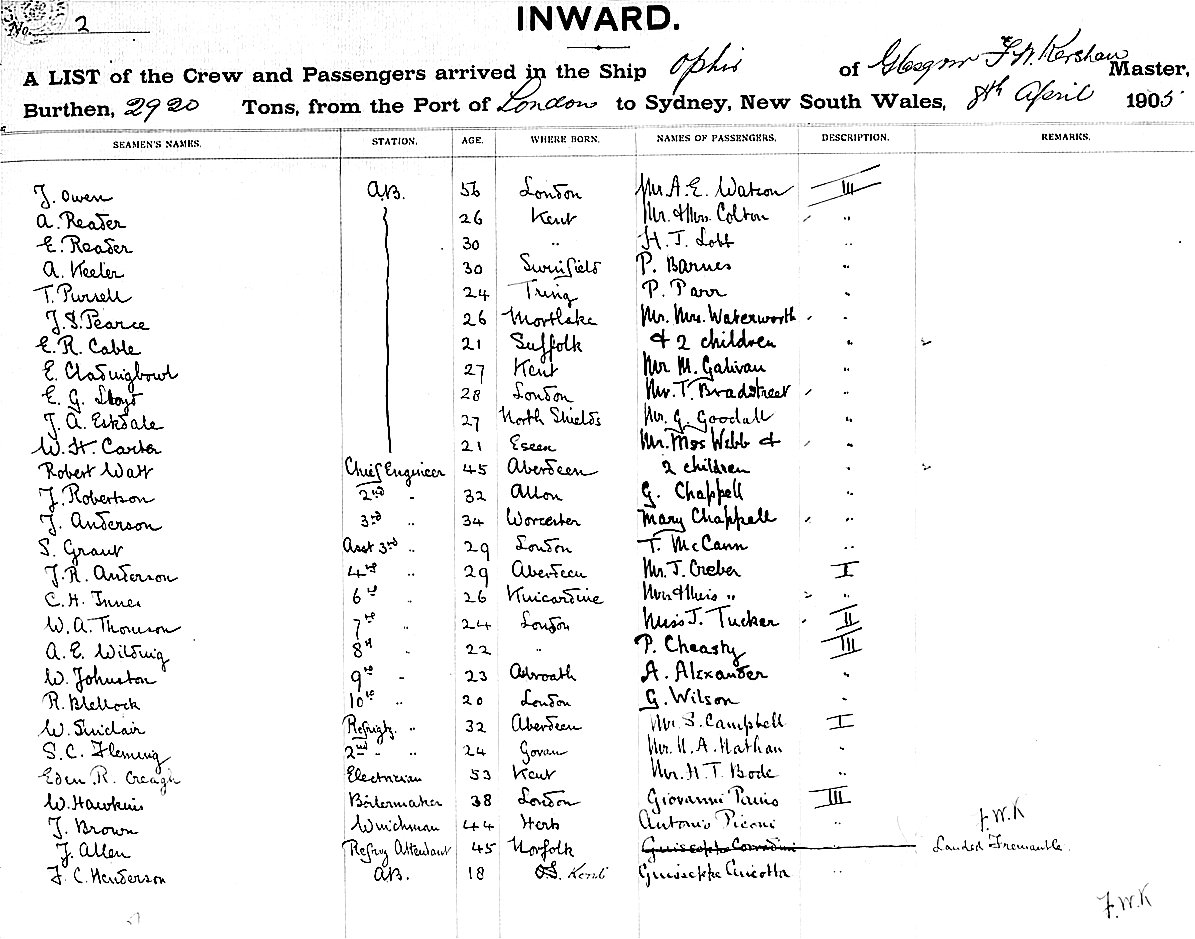 No. 2
INWARD.
A LIST of the Crew and Passengers arrived in the Ship Ophir of Glasgow F. W. Kershaw Master,
Burthen, 2920 Tons, from the Port of London to Sydney, New South Wales, 8th April 1905
SEAMEN'S NAMES. STATION. AGE. WHERE BORN. NAMES OF PASSENGERS. DESCRIPTION. REMARKS.
J. Owen A.B. 56 London Mr. A. E. Watson III
A. Reader 26 Kent Mr. & Mrs. Colton "
E. Reader 30 " H. T. Lott "
A. Keeler 30 P. Barnes "
T. Pursell 24 Tring P. Parr "
J. S. Pearce 26 Mortlake Mr. Mrs. Waterworth "
E. R. Cable 21 Suffolk & 2 children "
E. 27 Kent Mr M. Galivan "
E. G. Lloyd 28 London Mr. T. Bradstreet "
J. A. Eskdale 27 North Shields Mr. G. Goodall "
W. H. Carter 21 Mr. Mrs Webb & "
Robert Watt Chief Engineer 45 Aberdeen 2 children "
J. Robertson 2nd " 32 G. Chappell "
J. Anderson 3rd " 34 Worcester Mary Chappell "
S. Grant Asst 3rd " 29 London T. McCann "
J. R. Anderson 4th " 29 Aberdeen Mr. J. Creber I
C. H. Innes 6th " 26 Kincardine "
W. A. Thomson 7th " 24 London Miss J. Tucker II
A. E. Wilding 8th " 22 " P. Cheasty III
W. Johnston 9th " 23 A. Alexander "
R. 10th " 20 London G. Wilson "
W. Sinclair Refrigtg. " 32 Aberdeen Mr. S. Campbell I
S. C. Fleming 2nd " " 24 Govan Mr. N. A. Nathan "
Eden R. Creagh Electrician 53 Kent Mr. H. T. Bode "
W. Hawkins Boilermaker 38 London Giovanni III
J. Brown Winchman 44 Herts Antonio Piconi " F.W.K
J. Allen Refrig Attendant 45 Norfolk Guiseppe Corradini Landed Fremantle.
F. C. Henderson A.B. 18 Kent Guiseppe "
F.W.K